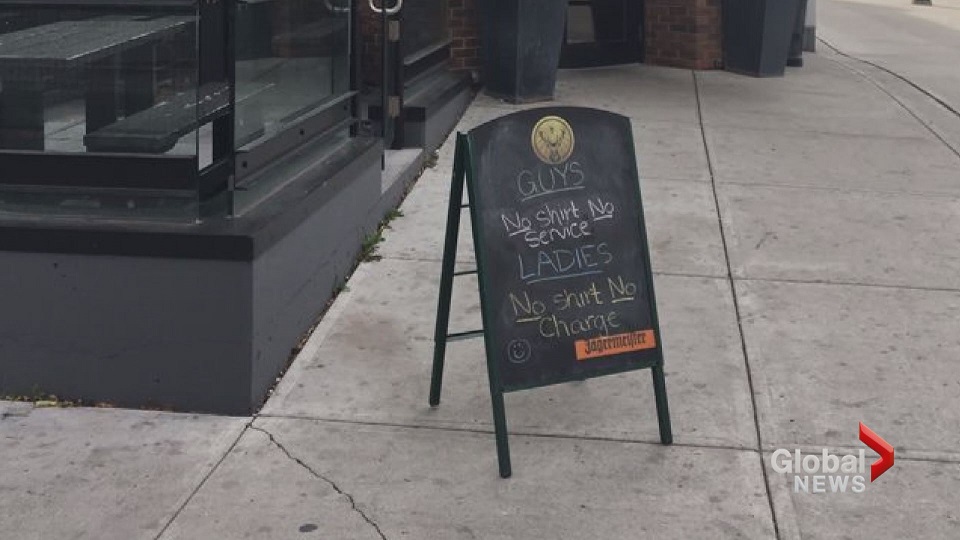 GUYS
No shirt No
Service
LADIES
No shirt No
Charge
Jägermeister
Global
NEWS